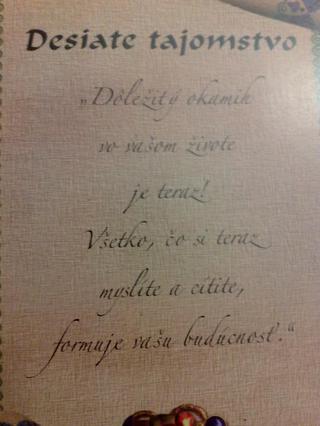 Desiate tajomstvo
„Dôležitý okamih
vo vašom živote
je teraz!
Všetko, čo si teraz
myslíte a cítite,
formuje vašu budúcnosť.“